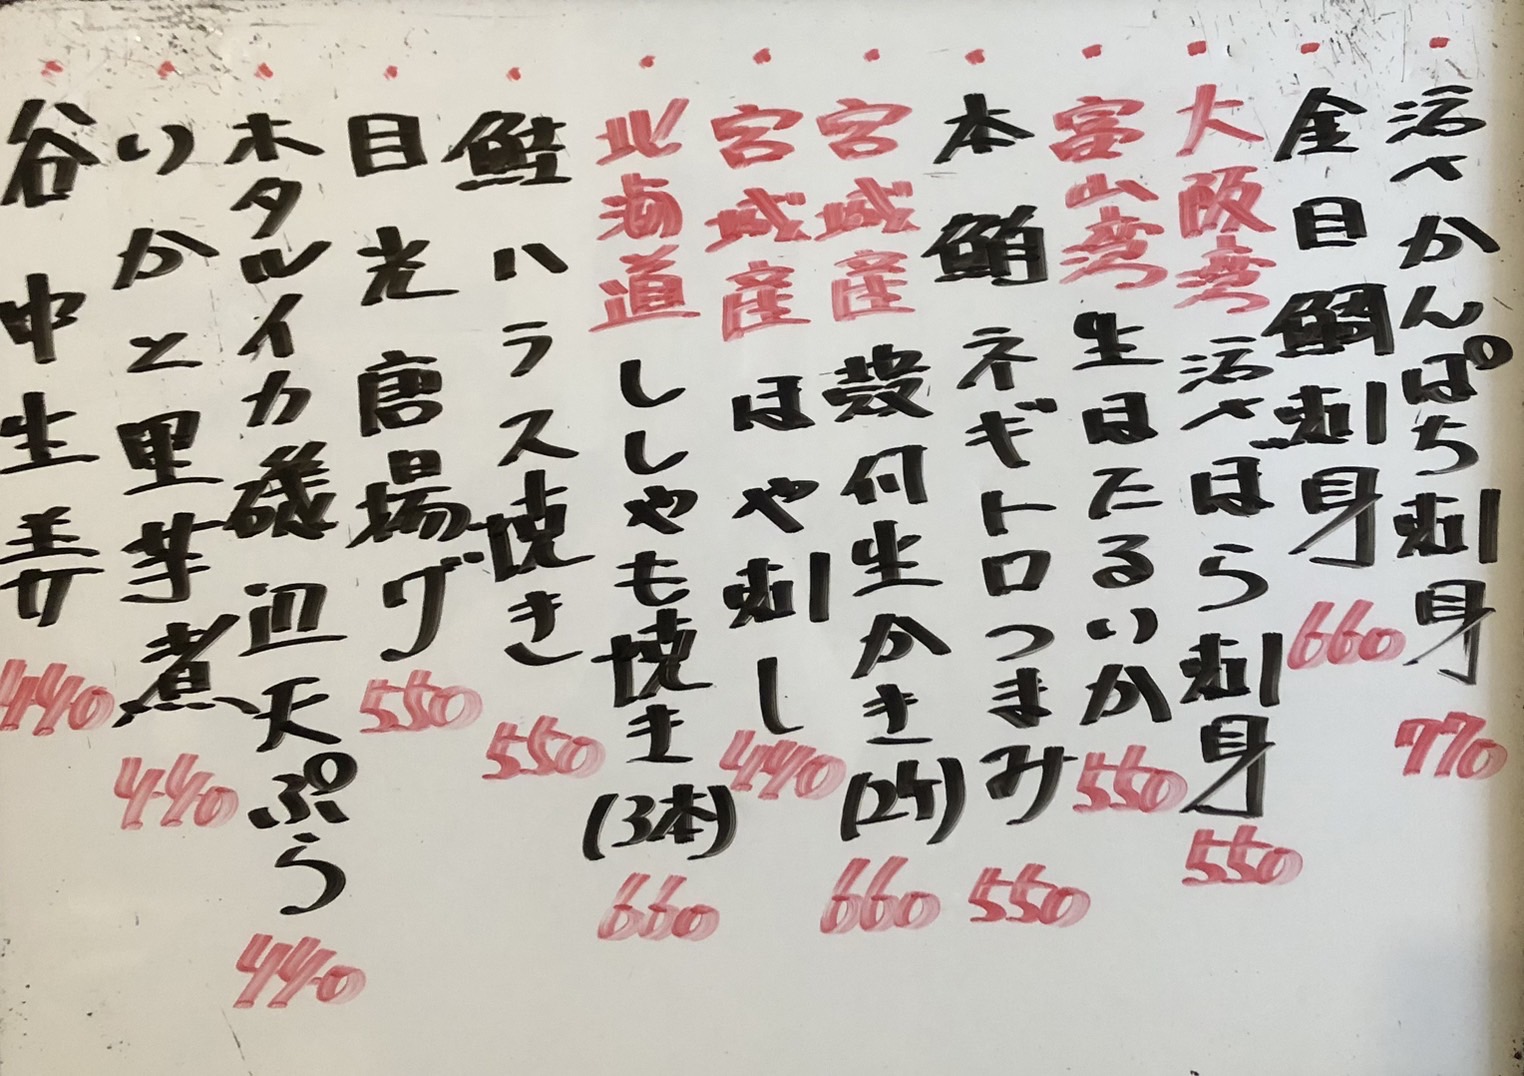 活〆かんぱち刺身 770
金目鯛刺身 660
大阪湾 活〆ぼら刺身 550
富山湾 生ほたるいか 550
本鮪 ネギトロつまみ 550
宮城産 殻付生かき(2ケ) 660
宮城産 ほや刺し 440
北海道 ししゃも焼き(3本) 660
鮭ハラス焼き 550
目光唐揚げ 550
ホタルイカ磯辺天ぷら 440
いかと里芋煮 440
谷中生姜 440